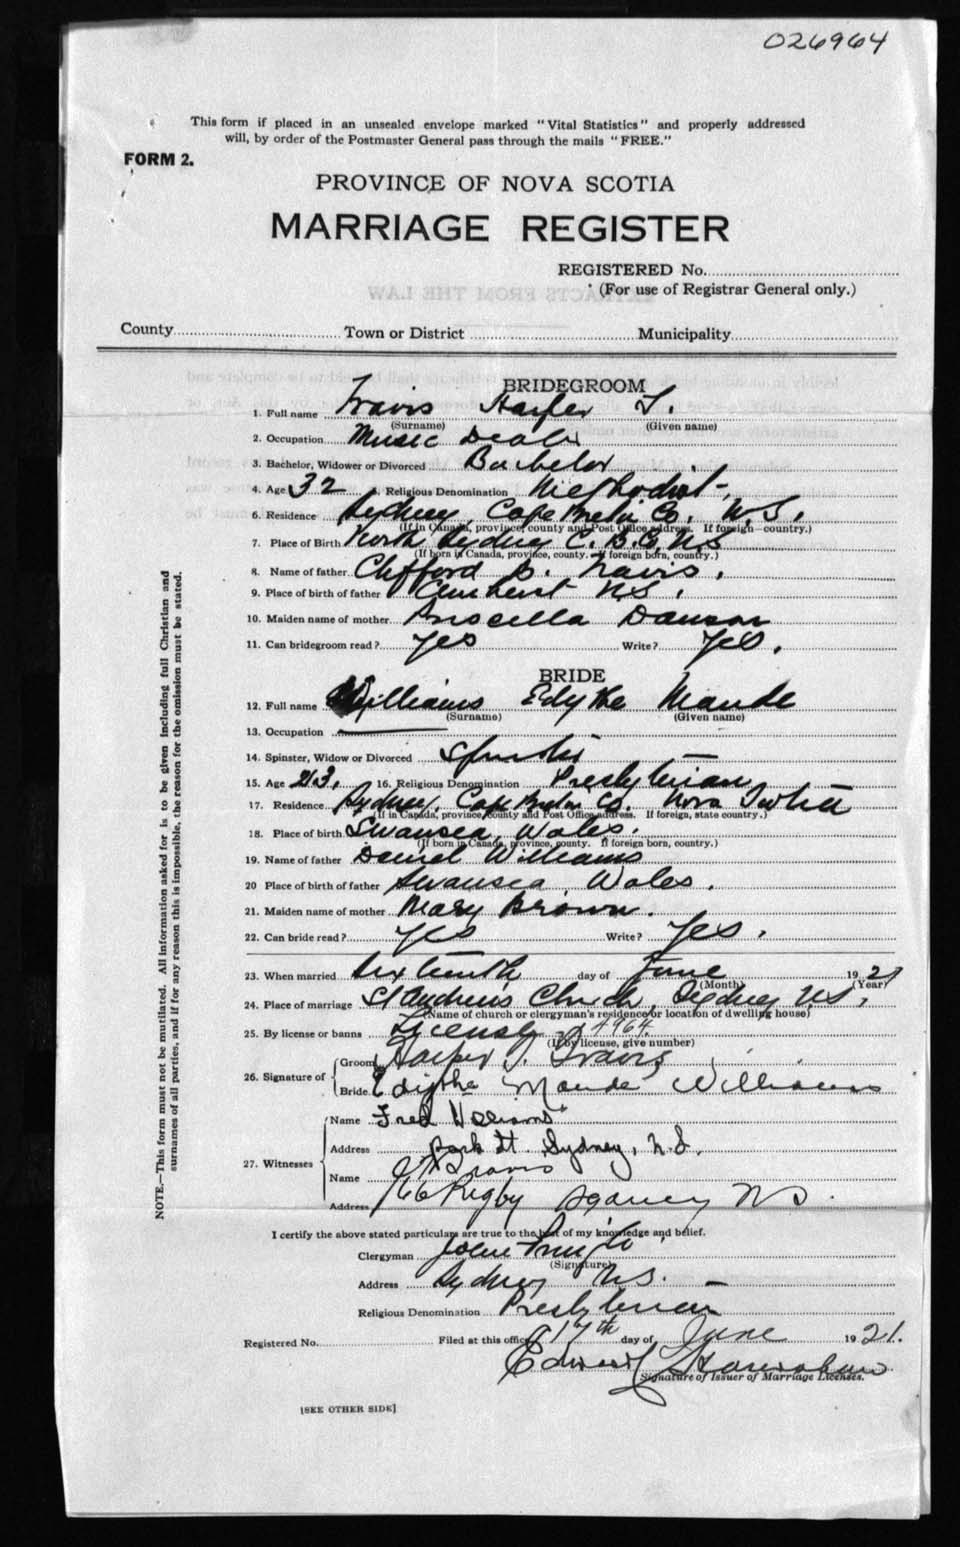 026964
This form if placed in an unsealed envelope marked "Vital Statistics" and properly addressed
will, by order of the Postmaster General pass through the mails "FREE."
FORM 2.
PROVINCE OF NOVA SCOTIA
MARRIAGE REGISTER
REGISTERED No.
(For use of Registrar General only.)
EXTRACTS FROM THE LAW
County Town or District Municipality
BRIDEGROOM
1. Full name Travis Harper T.
(Surname) (Given name)
2. Occupation Music Dealer
3. Bachelor, Widower or Divorced Bachelor
4. Age 32 Religious Denomination Methodist
6. Residence Sydney, Cape Breton Co. N.S.
(If in Canada, province, county and Post Office address. If foreign—country.)
7. Place of Birth North Sydney C.B.Co. N.S
(If born in Canada, province, county. If foreign born, country.)
8. Name of father Clifford D. Travis.
9. Place of birth of father Amherst N.S.
10. Maiden name of mother Priscilla Dawson
11. Can bridegroom read? Yes Write? Yes.
BRIDE
12. Full name Williams Edythe Maude
(Surname) (Given name)
13. Occupation
14. Spinster, Widow or Divorced Spinster
15. Age 23. 16. Religious Denomination Presbyterian
17. Residence Sydney. Cape Breton Co. Nova Scotia
(If in Canada, province, county and Post Office address. If foreign, state country.)
18. Place of birth Swansea, Wales.
(If born in Canada, province, county. If foreign born, country.)
19. Name of father Daniel Williams
20 Place of birth of father Swansea, Wales.
21. Maiden name of mother Mary Brown.
22. Can bride read? Yes Write? Yes.
23. When married Sixteenth day of June 1921
(Month) (Year)
24. Place of marriage St Andrew's Church, Sydney N.S.
(Name of church or clergyman's residence or location of dwelling house)
25. By license or banns License 4964
(If by license, give number)
26. Signature of Groom Harper T. Travis
Bride Edythe Maude Williams
27. Witnesses Name Fred Williams
Address Park St. Sydney, N.S.
Name Travis
Address Rigby Sydney NS.
I certify the above stated particulars are true to the best of my knowledge and belief.
Clergyman John Pringle
(Signature)
Address Sydney N.S.
Religious Denomination Presbyterian
Registered No. Filed at this office 17th day of June 1921.
Edward
Signature of Issuer of Marriage Licenses.
[SEE OTHER SIDE]
NOTE.—This form must not be mutilated. All information asked for is to be given including full Christian and
surnames of all parties, and if for any reason this is impossible, the reason for the omission must be stated.